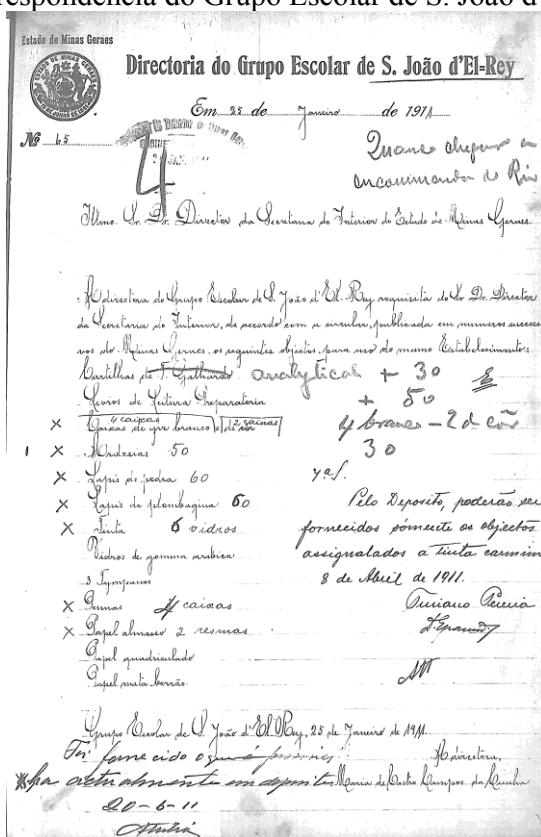 respondência do Grupo Escolar de S. João d
Estado de Minas Geraes
Directoria do Grupo Escolar de S. João d'El-Rey
Em 25 de Janeiro de 1911
Nº 65
4
Quando chegar a
encommenda do Rio
Illmo. Sr. Dr. Director da Secretaria do Interior do Estado de Minas Geraes.
A directora do Grupo Escolar de S. João d'El-Rey requisita do Sr. Dr. Director
da Secretaria do Interior, de accordo com a circular, publicada em numeros successi
vos do Minas Geraes, os seguintes objectos, para uso do mesmo Estabelecimento:
Cartilhas de T. Galhardo analytical + 30
Livros de Leitura Preparatoria + 50
X Caixas de giz branco e de côr 4 caixas 2 caixas 4 branco - 2 de côr
X Ardosias 50 30
X Lapis de pedra 60
X Lapis de plombagina 60
X Tinta 6 vidros
Vidros de gomma arabica
3 Tympanos
X Pennas 4 caixas
X Papel almasso 2 resmas
Papel quadriculado
Papel mata-borrão
Pelo Deposito, poderão ser
fornecidos sómente os objectos
assignalados a tinta carmim
8 de Abril de 1911.
Grupo Escolar de S. João d'El-Rey, 25 de Janeiro de 1911.
A directora,
Maria de Castro Campos da Cunha
Foi fornecido o que
ha actualmente em deposito
20-6-11